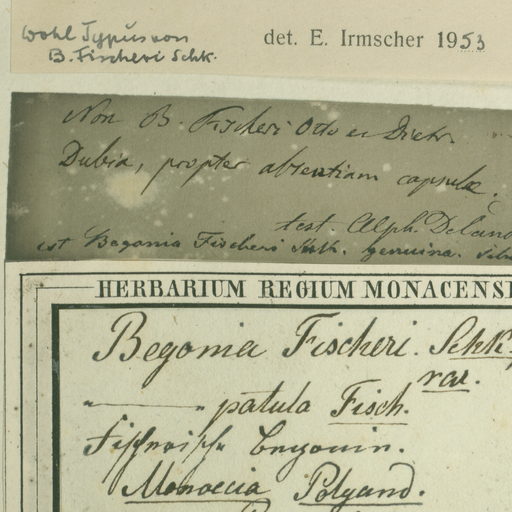 wohl Typus von
B. Fischeri Schk.
det. E. Irmscher 1953
Non B. Fischeri Otto et Dietr.
Dubia, propter absentiam capsulae.
test. Alph. DeCand
est Begonia Fischeri Schk. genuina.
HERBARIUM REGIUM MONACENS
Begonia Fischeri. Schk.
var.
" ——— " patula Fisch.
Fischerische Begonie.
Monoecia Polyand.